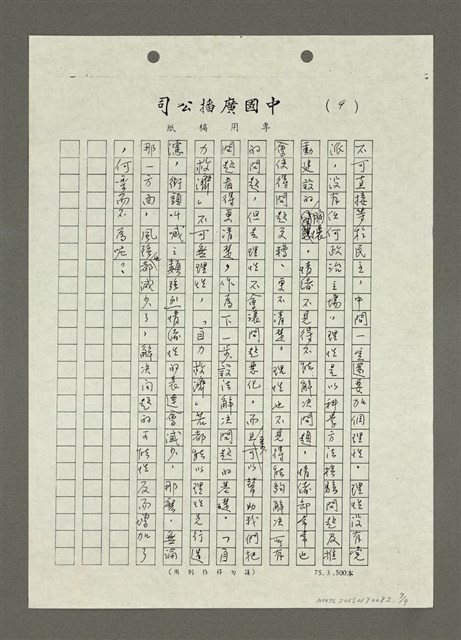 司公播廣國中
(9)
紙稿用專
不可直接等於民主,中間一定還要加個理性。理性沒有黨
派,沒有任何政治立場,理性是以科學方法檢驗問題及推
動建設的關懷,情緒不見得不能解決問題,情緒卻常常也
會使得問題更糟、更不清楚。理性也不見得能夠解決所有
的問題,但是理性不會讓問題惡化,而且可以幫助我們把
問題看得更清楚,作為下一步設法解決問題的基礎。「自
力救濟」不可無理性,「自力救濟」若都能以理性先行,遊
,街頭叫喊之類強烈情緒性的表達會減少,那麼,無論
那一方面,風險都減少了,解決問題的可能性反而增加了
,何樂而不為呢?
(用別作移勿請)
75.3.500本
NMTL20150170082 9/9